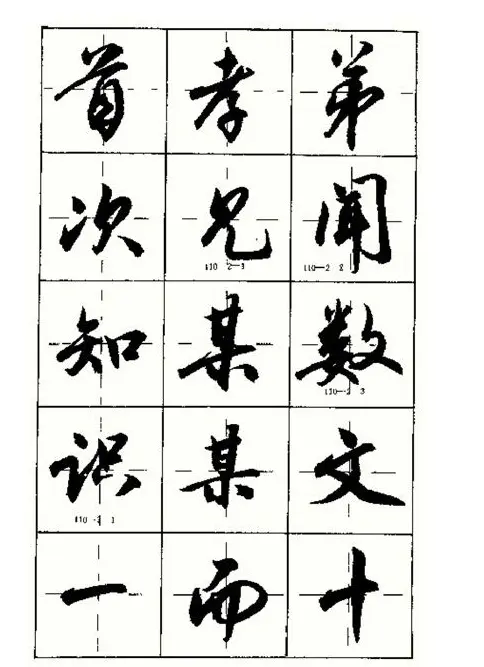 首孝弟
次见闻
110 2-3 110—2 2
知某数
110-2 3
识某文
110-2 1
一而十